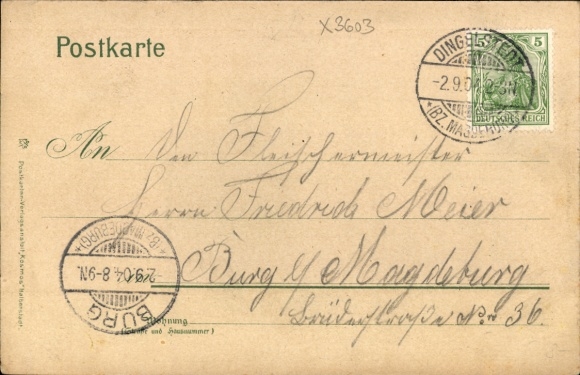 X3603
Postkarte
DINGELSTEDT
-2.9.04. 2-3N
*(BZ. MAGDEBURG)
5 5
DEUTSCHES REICH
An den Fleischermeister
Herrn Friedrich Meier
Burg b/ Magdeburg
Brüderstraße No 36.
BURG
-2.9.04. 8-9N.
*(BZ. MAGDEBURG)*
Wohnung
(Straße und Hausnummer)
Postkarten-Verlagsanstalt "Kosmos" Halberstadt.